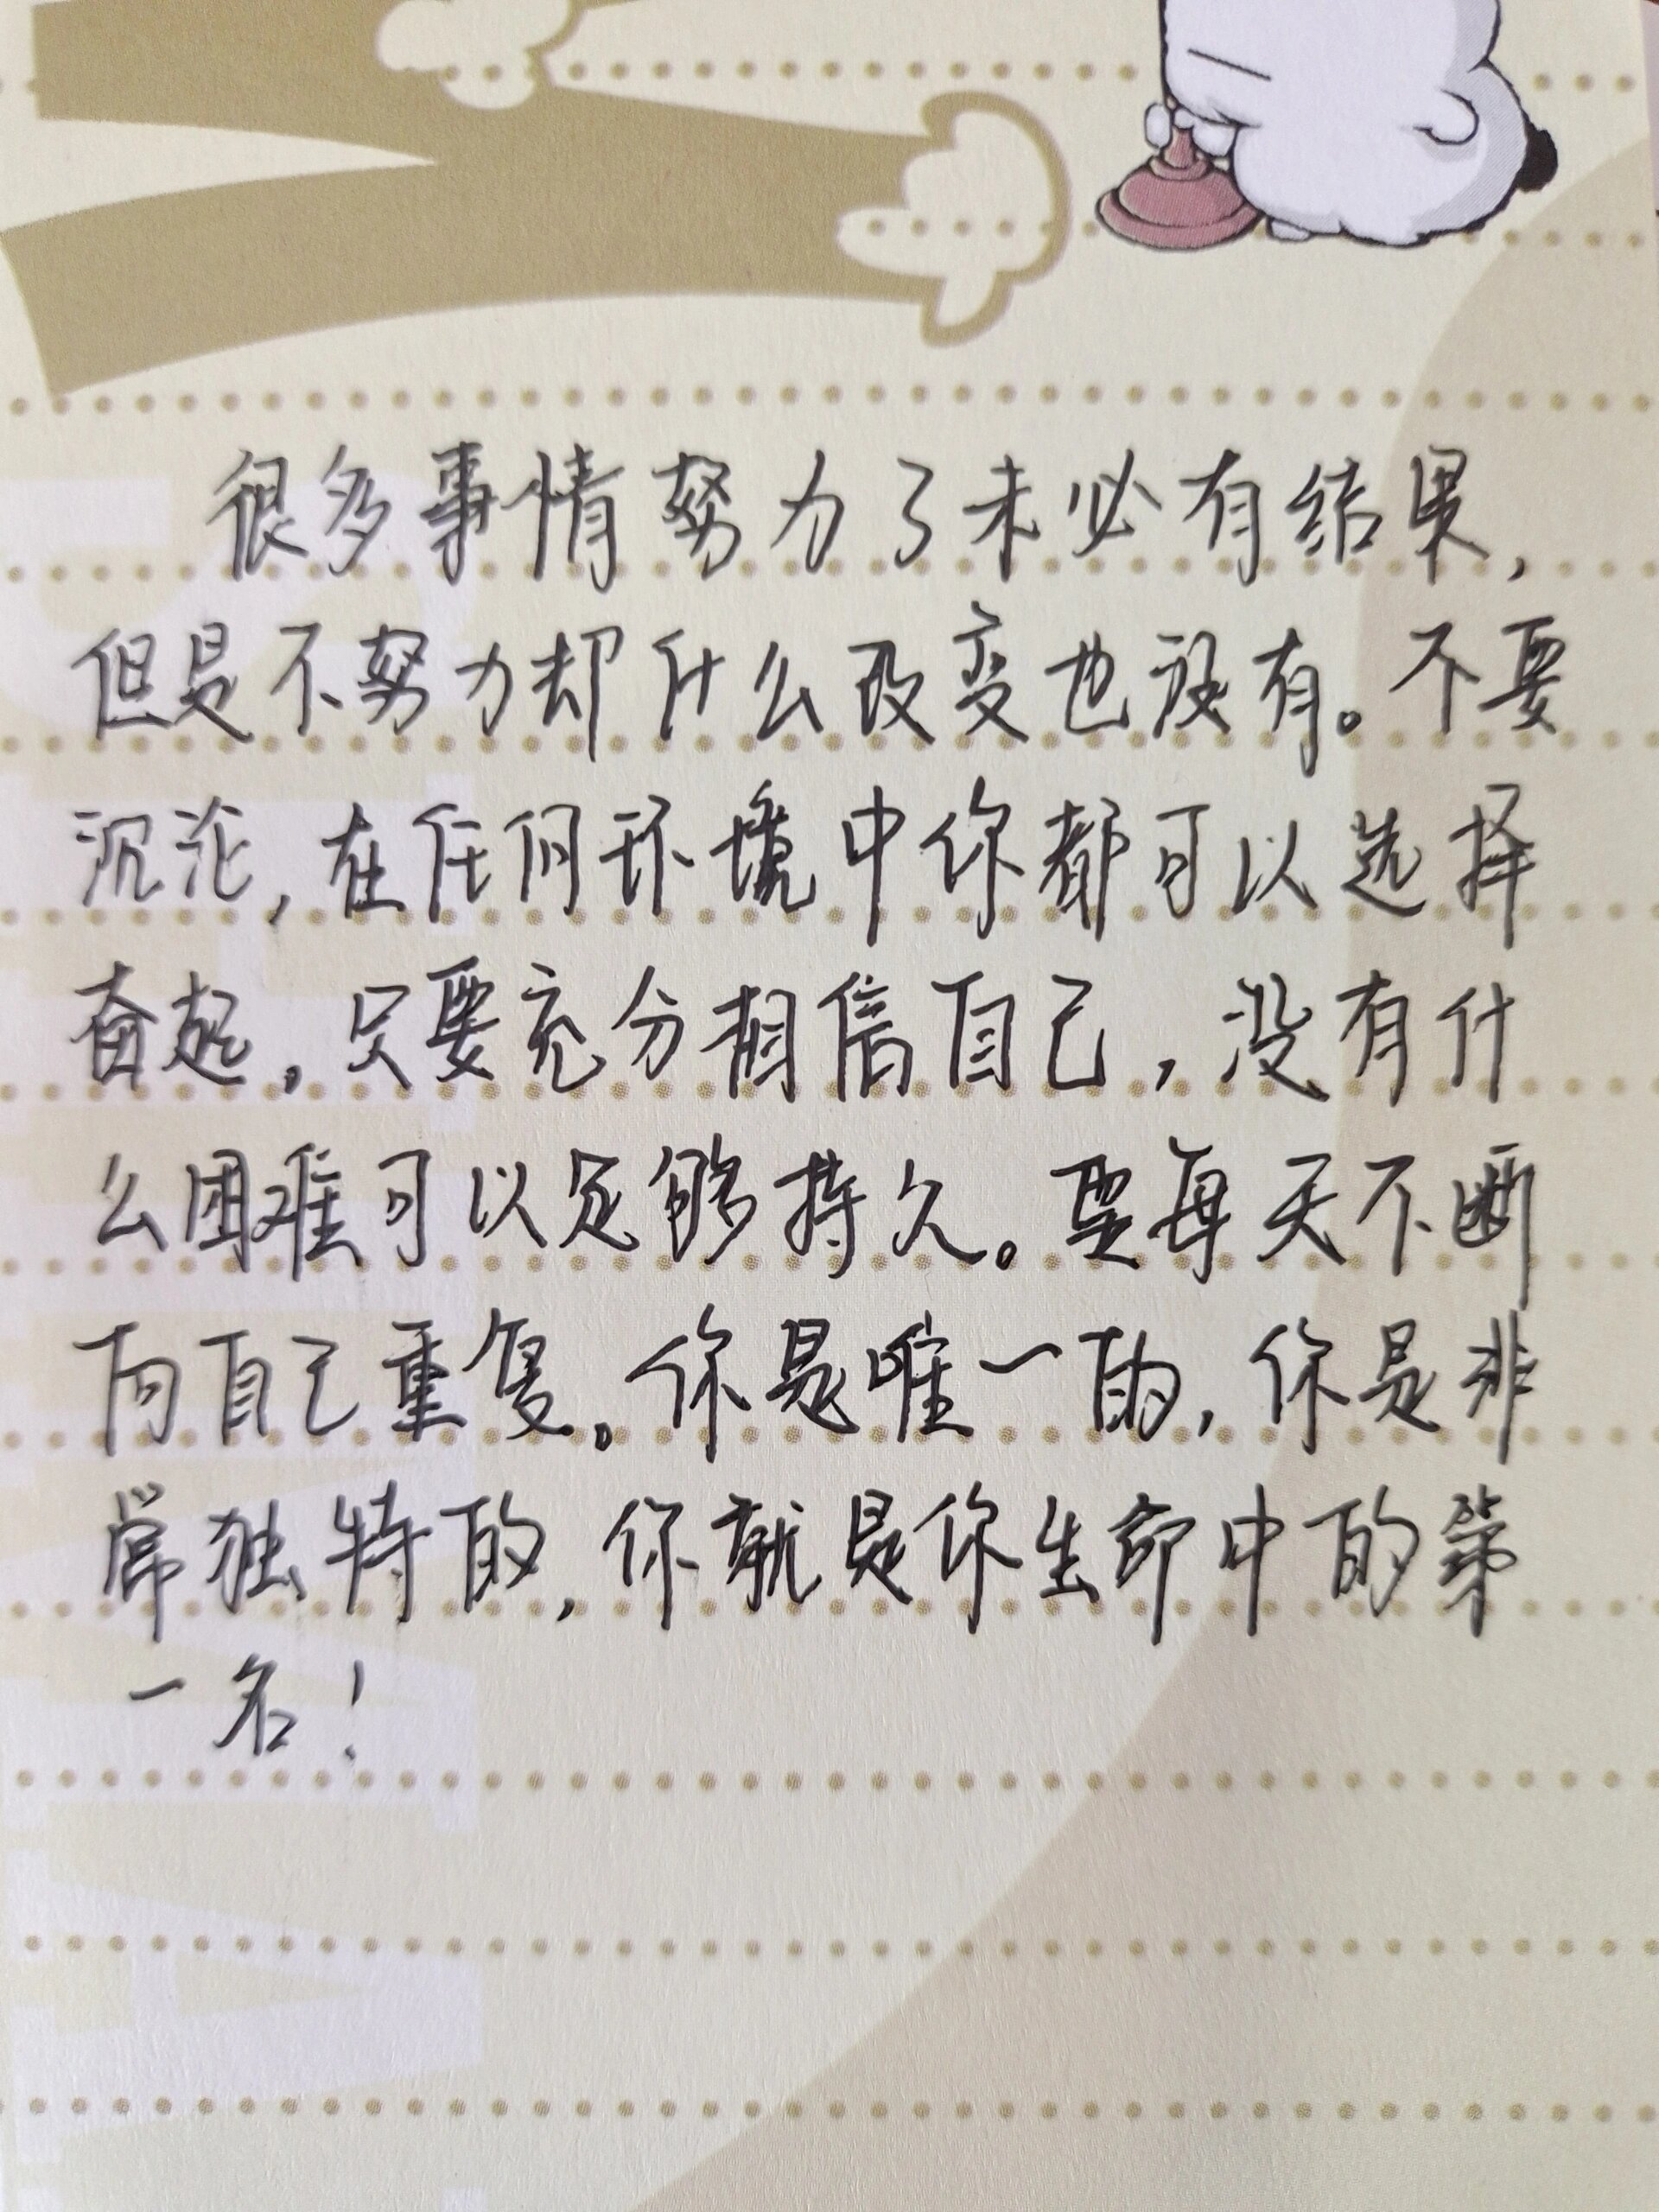 很多事情努力了未必有结果，
但是不努力却什么改变也没有。不要
沉沦，在任何环境中你都可以选择
奋起。只要充分相信自己，没有什
么困难可以足够持久。要每天不断
向自己重复。你是唯一的，你是非
常独特的，你就是你生命中的第
一名！